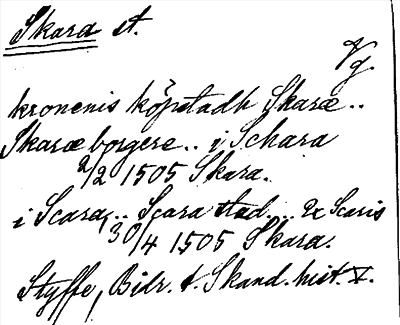 Skara st.
Vg.
kronenis köpstadh Skaræ..
Skaræ borgere.. i Schara
2/2 1505 Skara.
i Scara,.. Scara stad... Ex Scaris
30/4 1505 Skara.
Styffe, Bidr. t. Skand. hist. V.